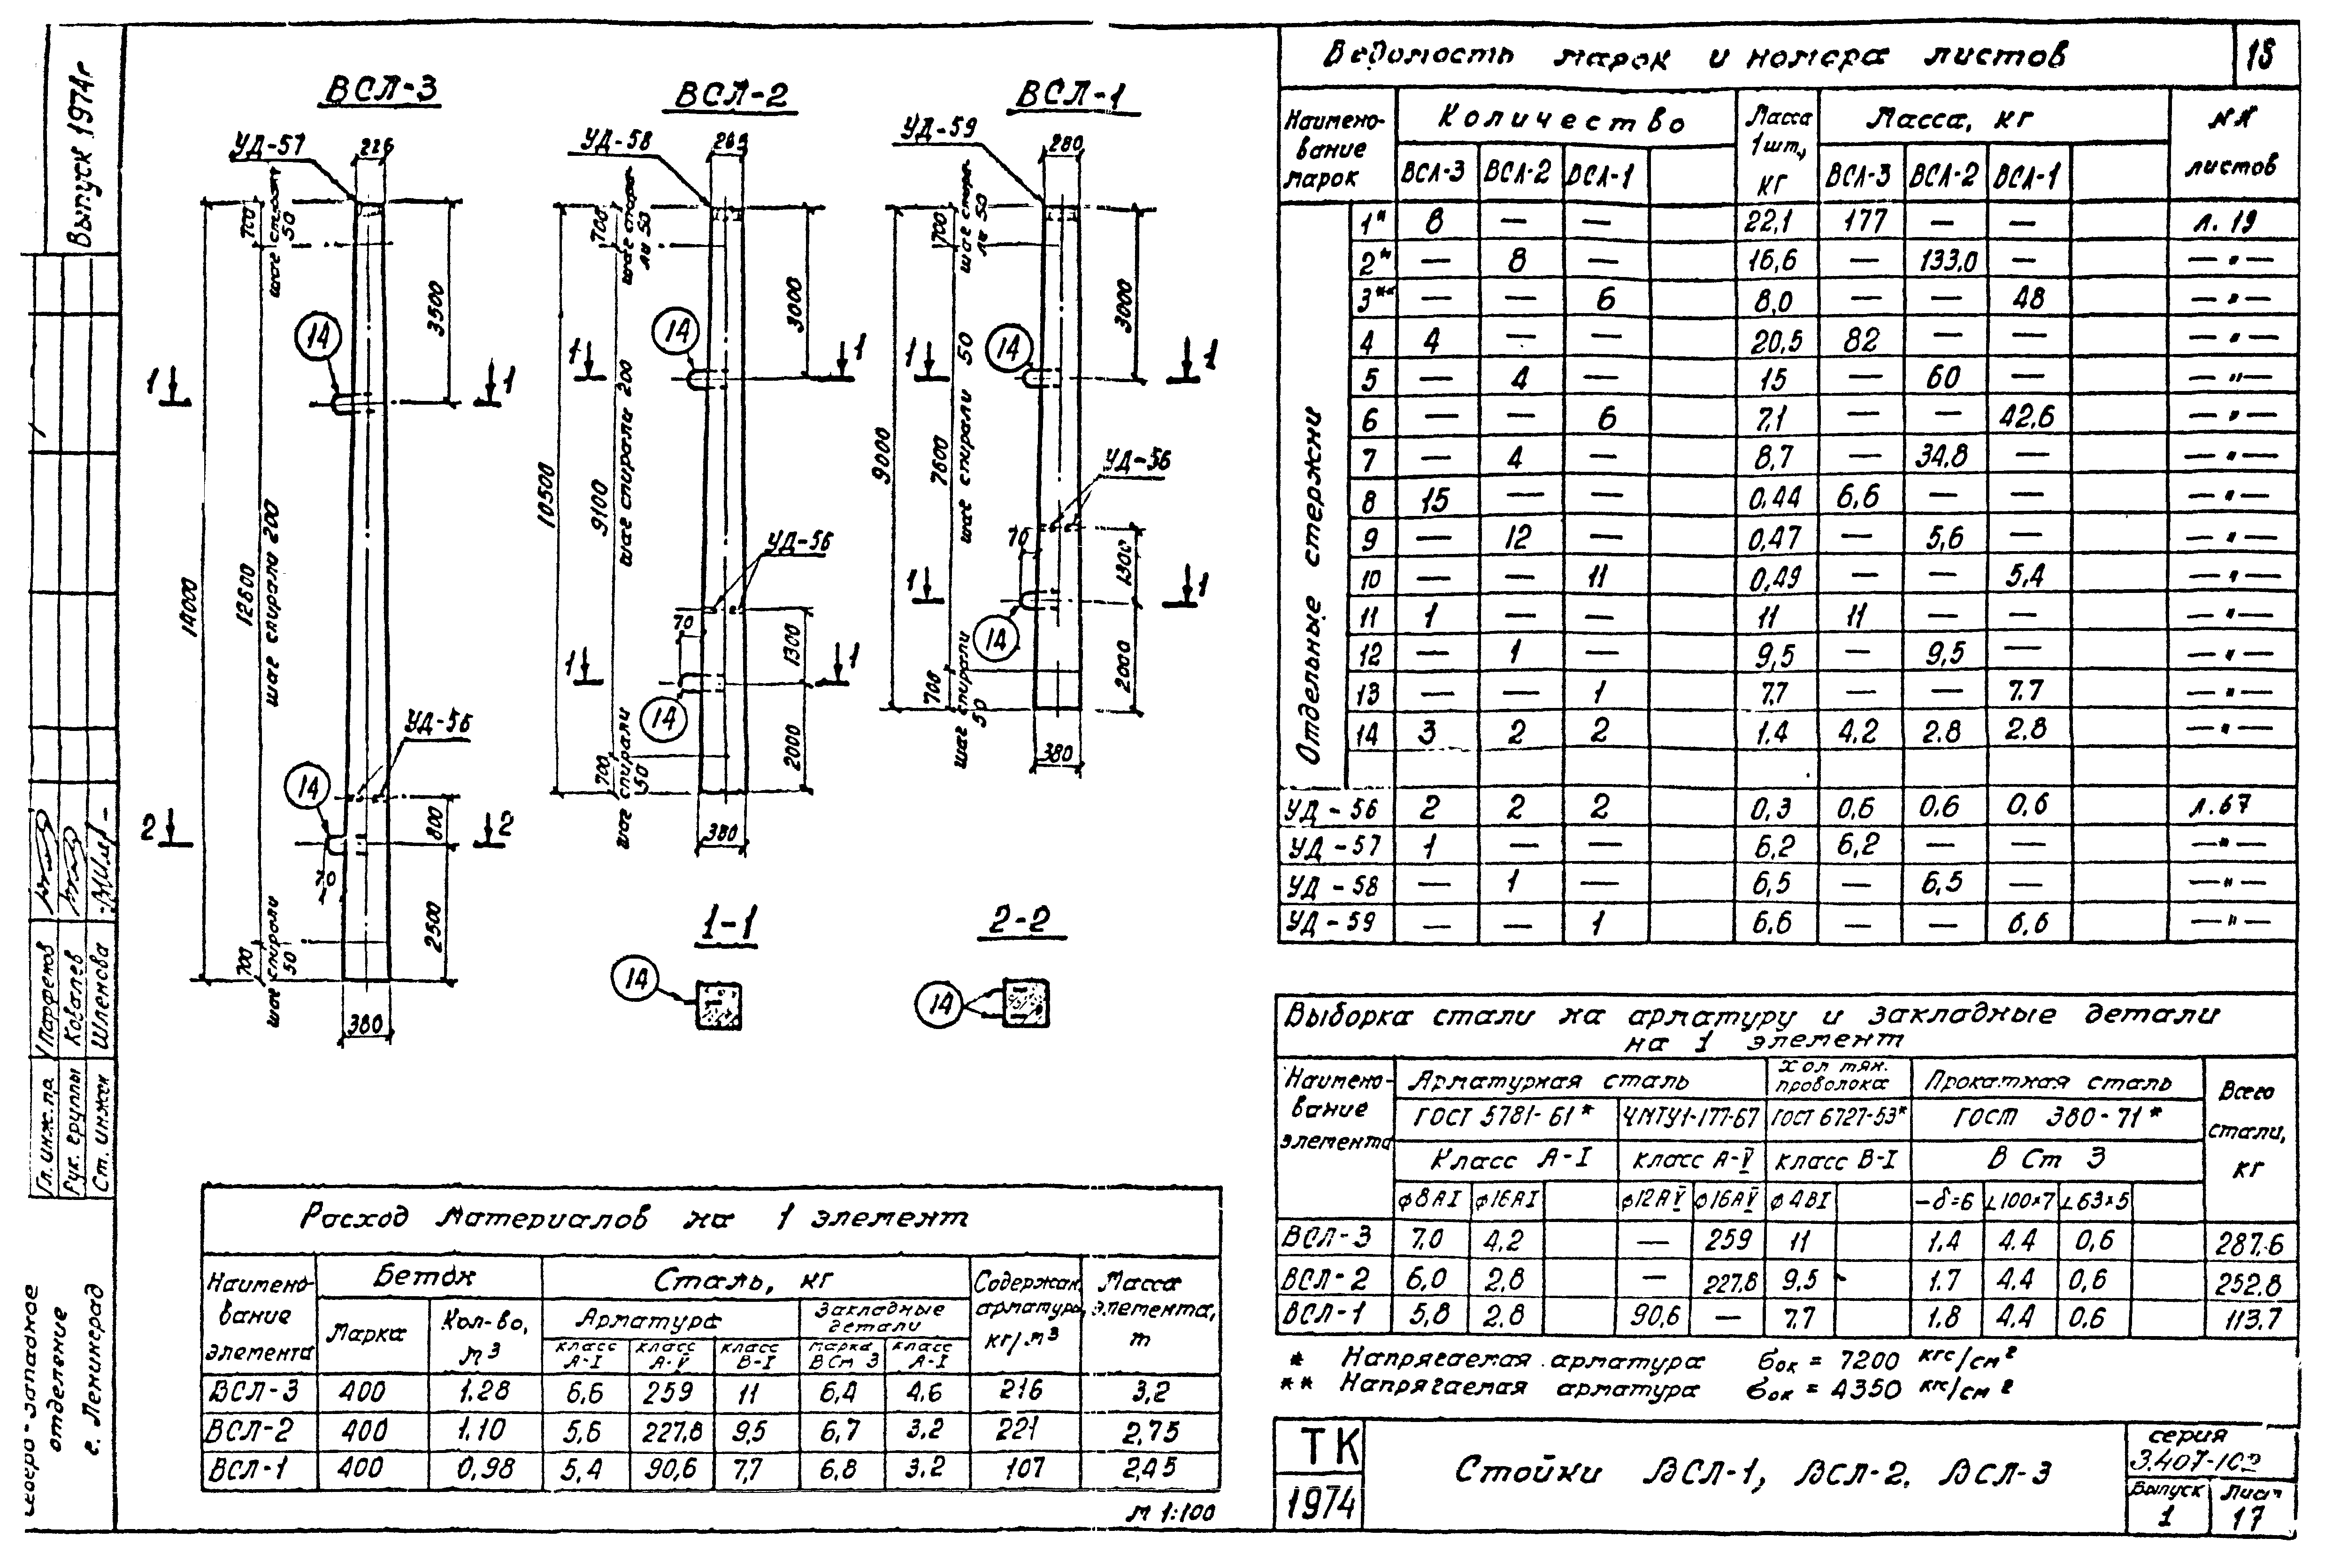 Выпуск 1974г
ВСЛ-3
ВСЛ-2
ВСЛ-1
УД-57
226
УД-58
265
УД-59
280
700
шаг спирали 50
12600
шаг спирали 200
14000
3500
14
1
1
УД-56
14
2
2
800
70
2500
700
шаг спирали 50
380
700
шаг спирали 50
10500
9100
шаг спирали 200
3000
14
1
1
УД-56
70
1300
1
1
14
2000
700
шаг спирали 50
380
700
шаг спирали 50
9000
7600
шаг спирали 50
3000
14
1
1
УД-56
70
1300
1
1
14
2000
700
шаг спирали 50
380
1-1
14
2-2
14
Ведомость марок и номера листов
18
Наимено-вание марок | Количество | Масса 1шт., кг | Масса, кг | NN листов
ВСЛ-3 ВСЛ-2 ВСЛ-1 ВСЛ-3 ВСЛ-2 ВСЛ-1
Отдельные стержни
1* 8 — — 22,1 177 — — л. 19
2* — 8 — 16,6 — 133,0 — —"—
3** — — 6 8,0 — — 48 —"—
4 4 — — 20,5 82 — — —"—
5 — 4 — 15 — 60 — —"—
6 — — 6 7,1 — — 42,6 —"—
7 — 4 — 8,7 — 34,8 — —"—
8 15 — — 0,44 6,6 — — —"—
9 — 12 — 0,47 — 5,6 — —"—
10 — — 11 0,49 — — 5,4 —"—
11 1 — — 11 11 — — —"—
12 — 1 — 9,5 — 9,5 — —"—
13 — — 1 7,7 — — 7,7 —"—
14 3 2 2 1,4 4,2 2,8 2,8 —"—
УД-56 2 2 2 0,3 0,6 0,6 0,6 л.67
УД-57 1 — — 6,2 6,2 — — —"—
УД-58 — 1 — 6,5 — 6,5 — —"—
УД-59 — — 1 6,6 — — 6,6 —"—
Выборка стали на арматуру и закладные детали
на 1 элемент
Наимено-вание элемента | Арматурная сталь | Хол тян. проволока | Прокатная сталь | Всего стали, кг
ГОСТ 5781-61* ЧМТУ1-177-67 ГОСТ 6727-53* ГОСТ 380-71*
Класс А-I класс А-V класс В-I В Ст 3
φ8АI φ16АI φ12АV φ16АV φ4ВI —δ=6 L100×7 L63×5
ВСЛ-3 7,0 4,2 — 259 11 1,4 4,4 0,6 287,6
ВСЛ-2 6,0 2,8 — 227,8 9,5 1,7 4,4 0,6 252,8
ВСЛ-1 5,8 2,8 90,6 — 7,7 1,8 4,4 0,6 113,7
* Напрягаемая арматура бок = 7200 кгс/см²
** Напрягаемая арматура бок = 4350 кгс/см²
Расход материалов на 1 элемент
Наимено-вание элемента | Бетон | Сталь, кг | Содержан. арматуры, кг/м³ | Масса элемента, т
Марка Кол-во, м³ Арматура Закладные детали
класс А-I класс А-V класс В-I марка ВСт 3 класс А-I
ВСЛ-3 400 1.28 6,6 259 11 6,4 4,6 216 3,2
ВСЛ-2 400 1.10 5,6 227,8 9,5 6,7 3,2 221 2,75
ВСЛ-1 400 0,98 5,4 90,6 7,7 6,8 3,2 107 2,45
М 1:100
ТК
1974
Стойки ВСЛ-1, ВСЛ-2, ВСЛ-3
серия
3.407-102
Выпуск
1
Лист
17
Гл. инж. пр. Парфенов
Рук. группы Ковалев
Ст. инжен Шленова
Северо-западное
отделение
г. Ленинград